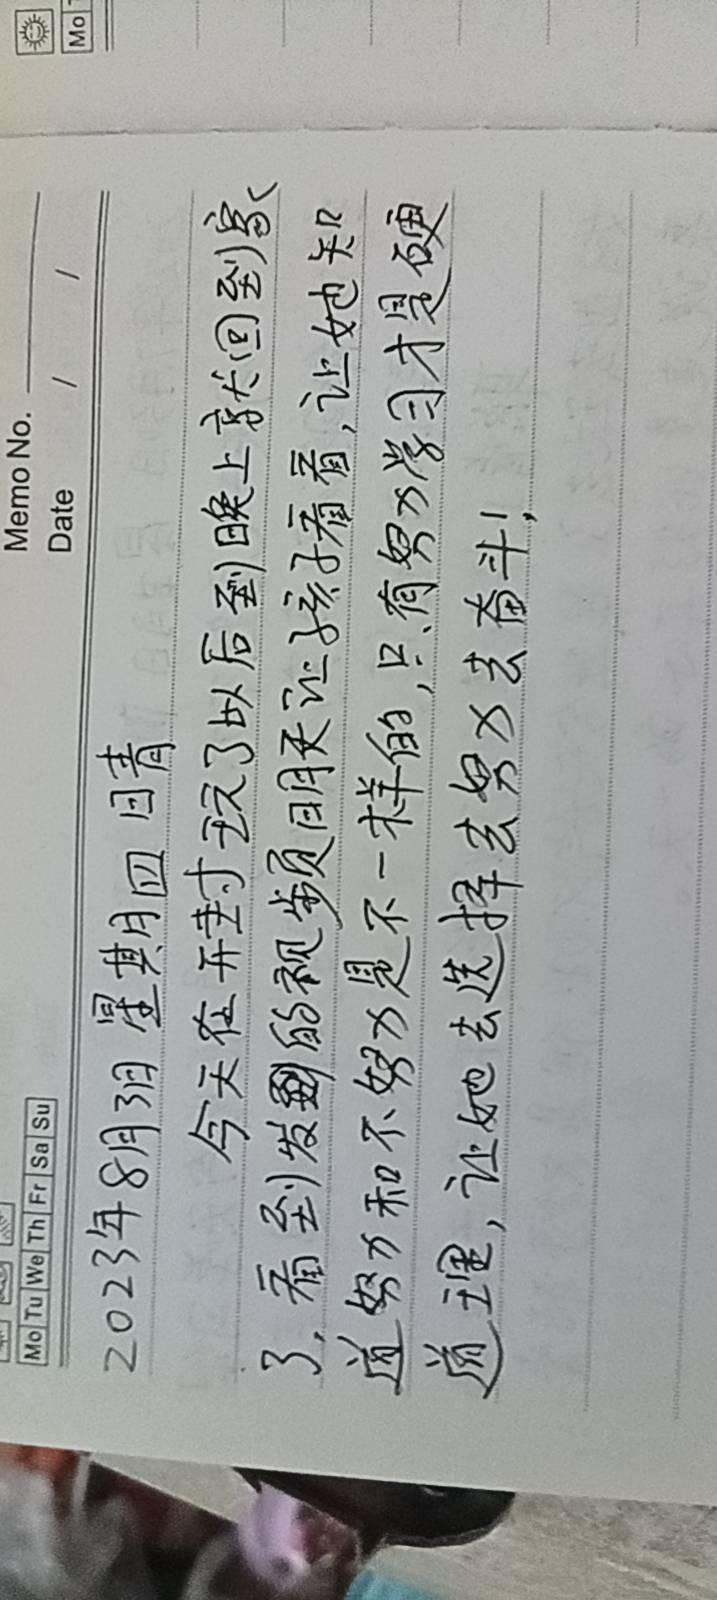 Mo
Memo No.
Date / /
Mo Tu We Th Fr Sa Su
2023年8月3日 星期四 日青
今天在开封玩了以后到晚上就回到家
了，看到发到的视频明天让孩子看看，让她知
道努力和不努力是不一样的，只有努力学习才是硬
道理，让她去选择去努力去奋斗！